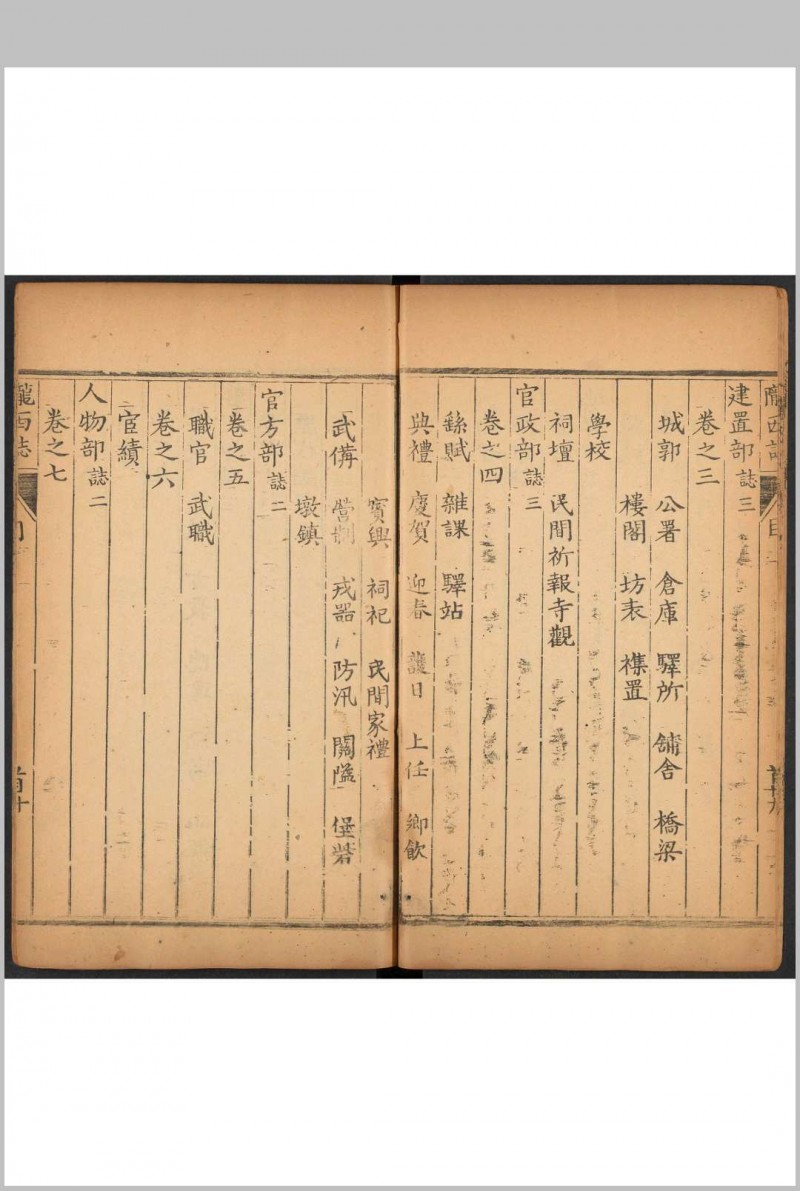 建置部誌三
卷之三
城郭 公署 倉庫 驛所 舖舍 橋梁
樓閣 坊表 襍置
學校
祠壇 民間祈報寺觀
官政部誌三
卷之四
繇賦 雜課 驛站
典禮 慶賀 迎春 護日 上任 鄉飲
賓興 祠祀 民間家禮
武備 營制 戎器 防汛 關隘 堡砦
墩鎮
官方部誌二
卷之五
職官 武職
卷之六
宦績
人物部誌二
卷之七
隴西誌